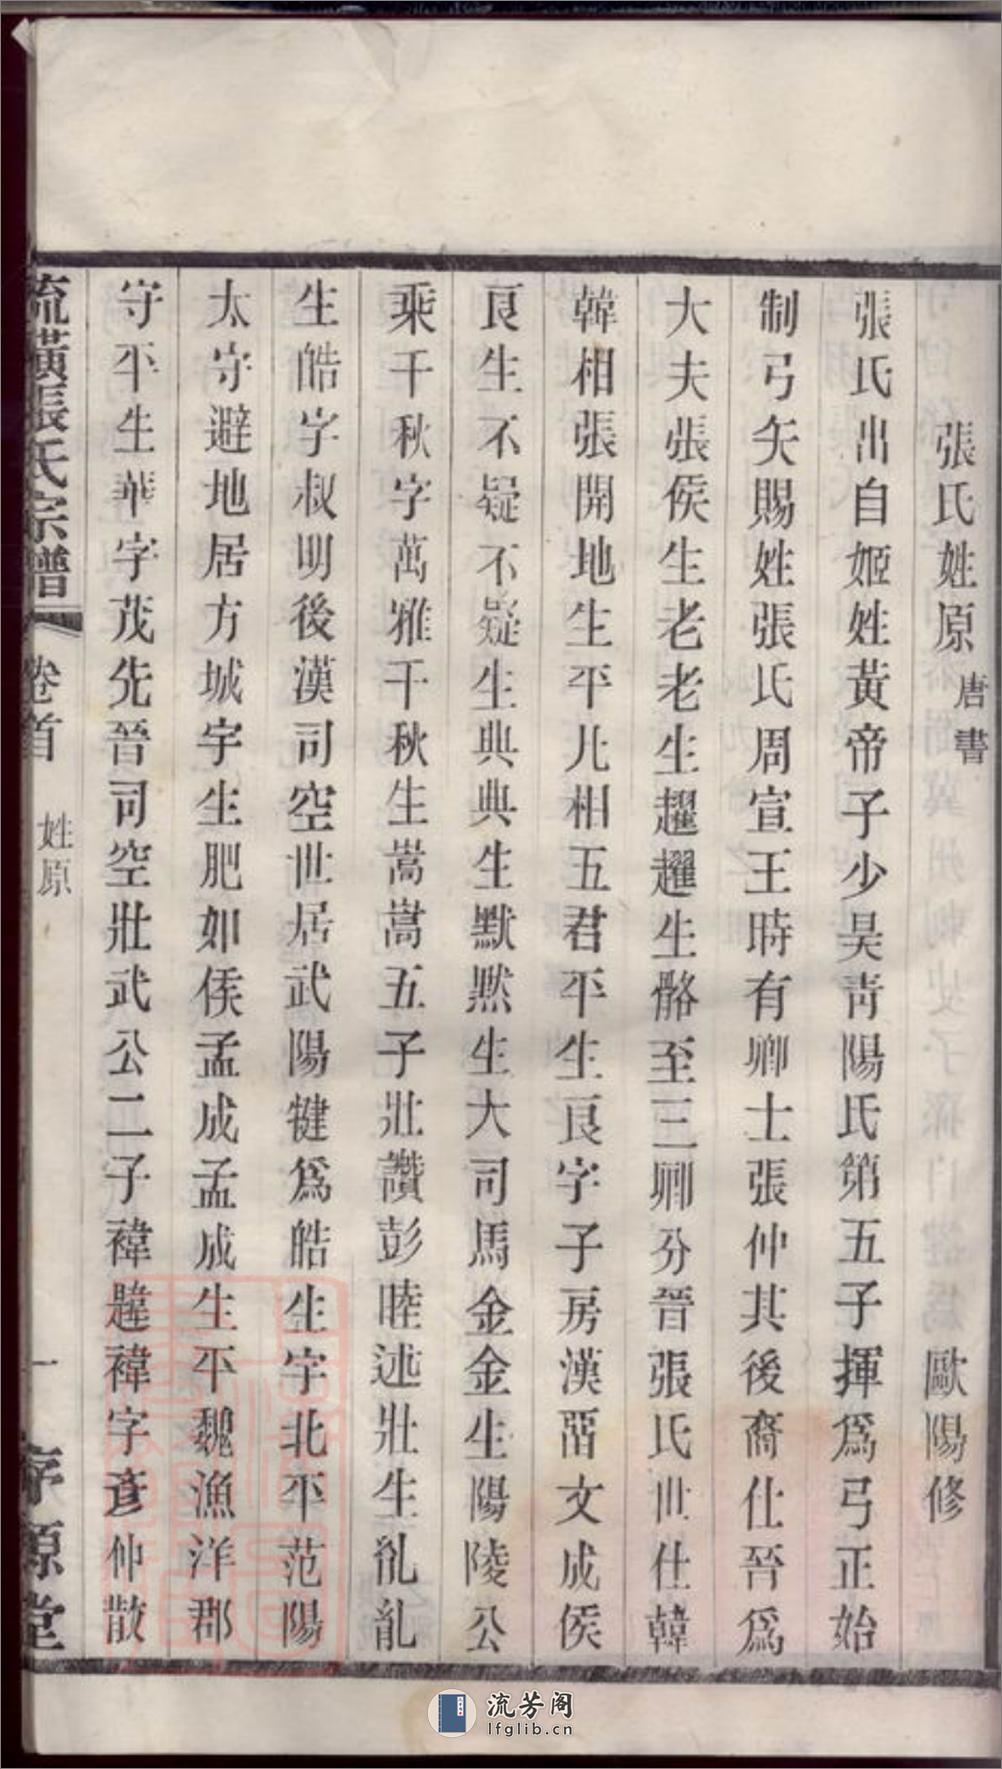 張氏姓原 唐書 歐陽修
張氏出自姬姓黃帝子少昊靑陽氏第五子揮爲弓正始
制弓矢賜姓張氏周宣王時有卿士張仲其後裔仕晉爲
大夫張侯生老老生趯趯生骼至三卿分晉張氏世仕韓
韓相張開地生平凡相五君平生良字子房漢畱文成侯
良生不疑不疑生典典生默默生大司馬金金生陽陵公
乘千秋字萬雅千秋生嵩嵩五子壯讚彭睦述壯生胤胤
生皓字叔明後漢司空世居武陽犍爲皓生宇北平范陽
太守避地居方城宇生肥如侯孟成孟成生平魏漁洋郡
守平生華字茂先晉司空壯武公二子褘韙褘字彥仲散
流璜張氏宗譜 卷首 姓原 一 存源堂
流芳阁
lfglib.cn